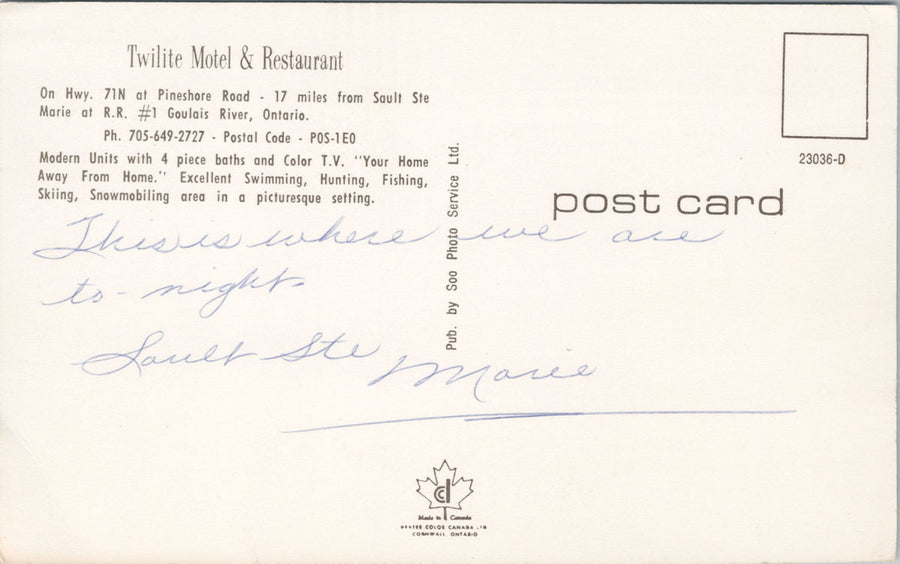 Twilite Motel & Restaurant
On Hwy. 71N at Pineshore Road - 17 miles from Sault Ste
Marie at R.R. #1 Goulais River, Ontario.
Ph. 705-649-2727 - Postal Code - P0S-1E0
Modern Units with 4 piece baths and Color T.V. "Your Home
Away From Home." Excellent Swimming, Hunting, Fishing,
Skiing, Snowmobiling area in a picturesque setting.
This is where we are
to-night.
Sault Ste Marie
Pub. by Soo Photo Service Ltd.
23036-D
post card
Made in Canada
COLOR CANADA LTD
CORNWALL ONTARIO